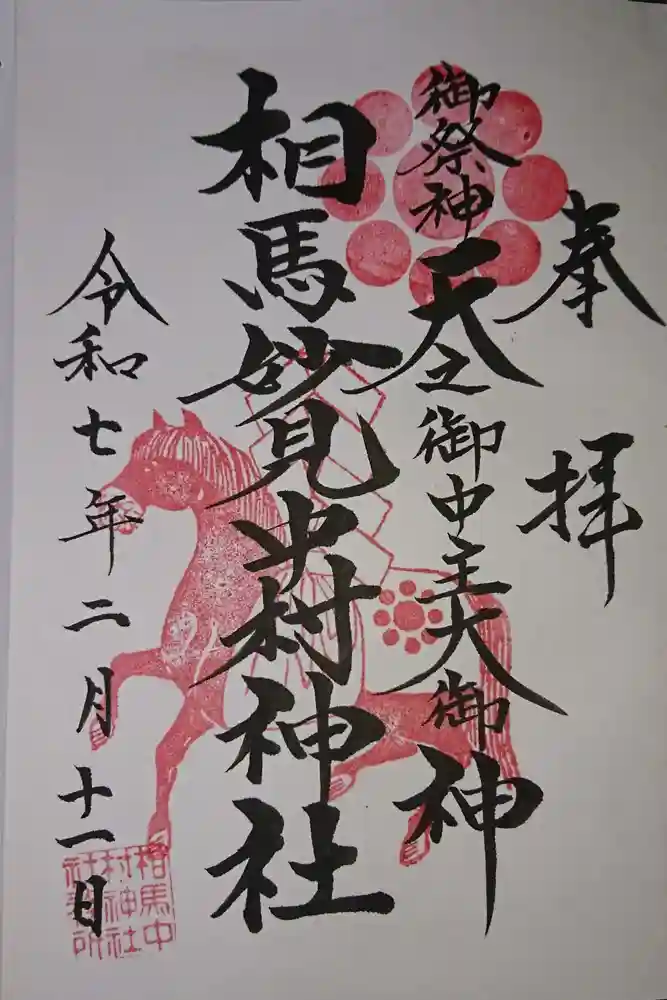 奉拝
御祭神 天之御中主大御神
相馬妙見中村神社
令和七年二月十一日
相馬中
村神社
社務所